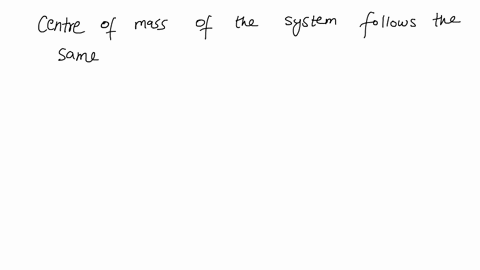 Centre of mass of the system follows the
same